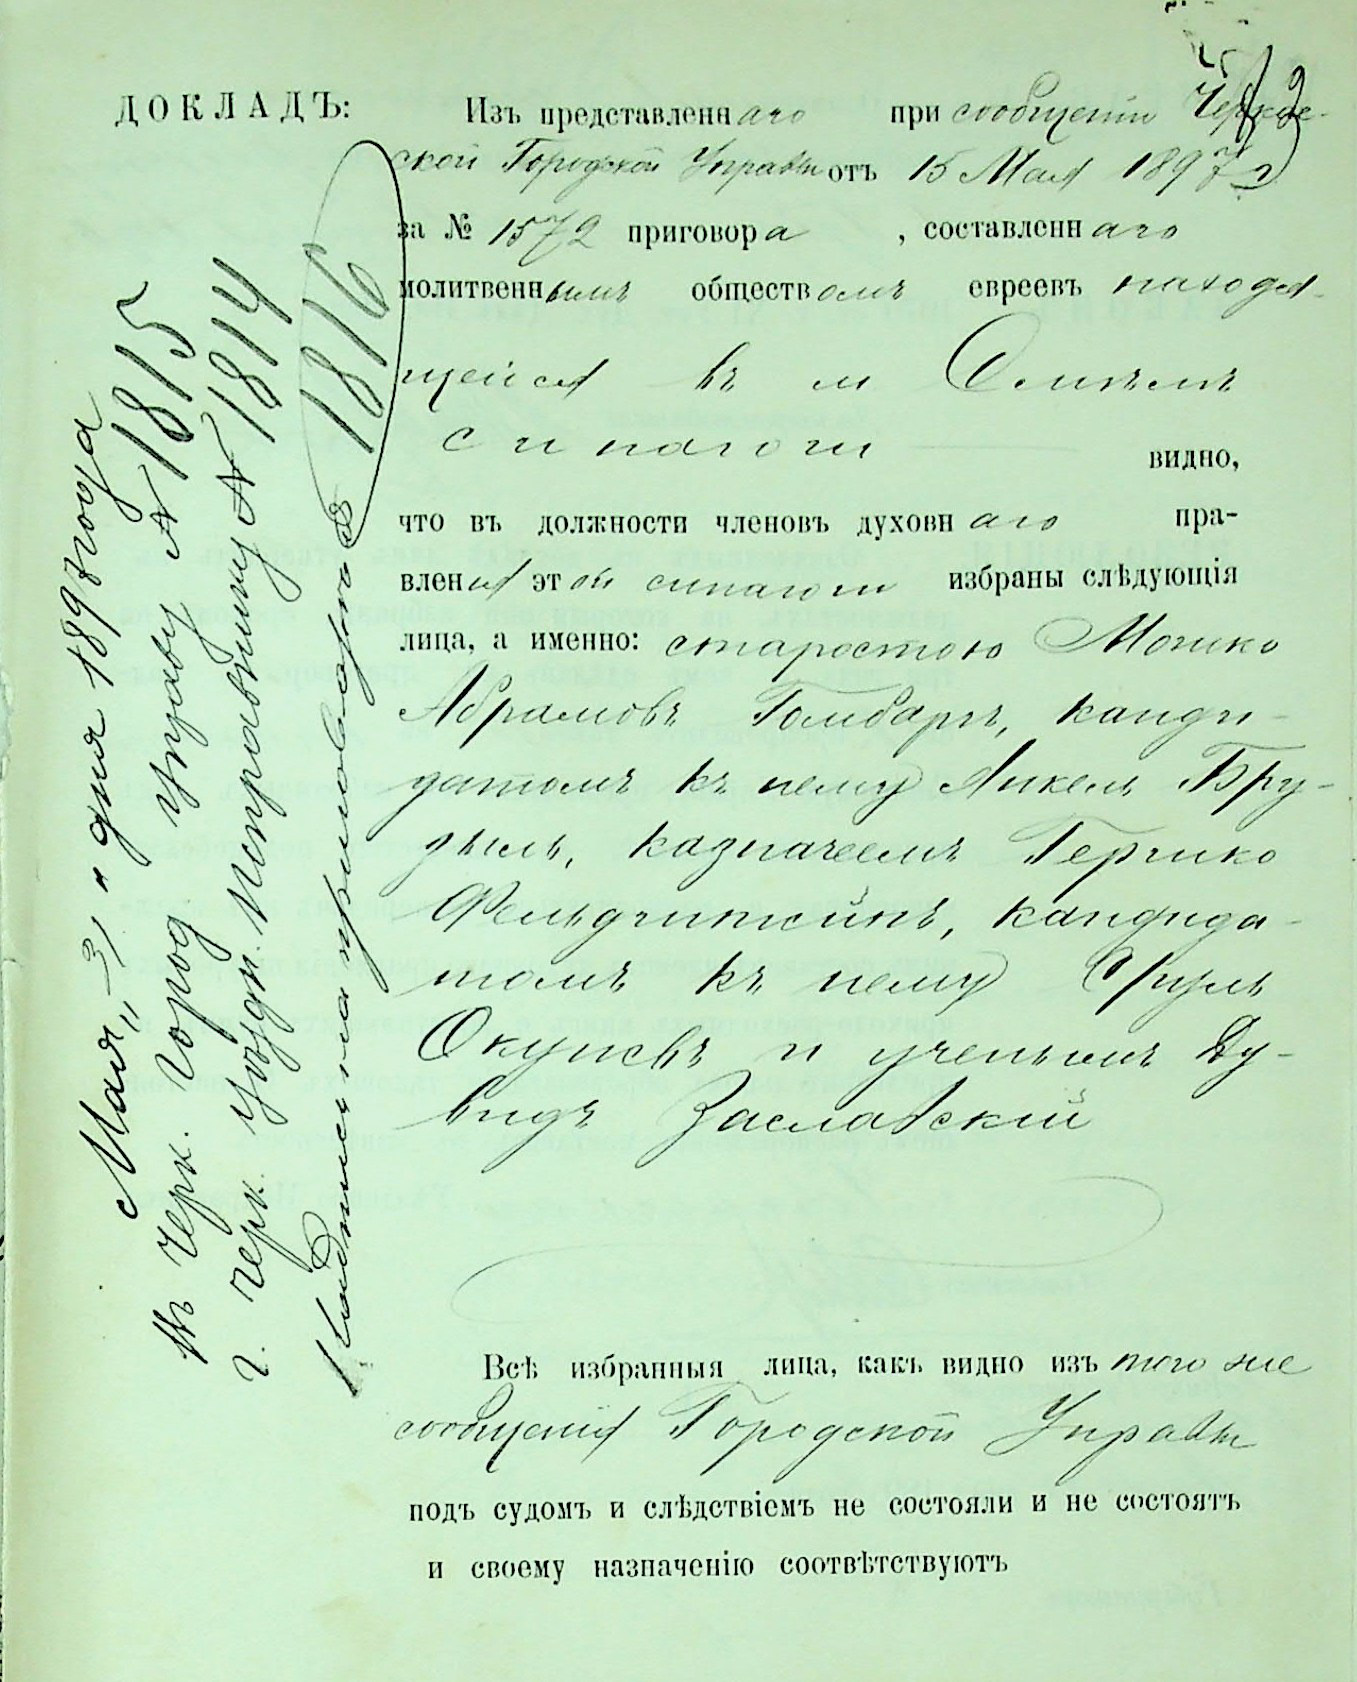 ДОКЛАДЪ: Изъ представленнаго при сообщеніи Черкас-
ской Городской Управы отъ 15 Мая 1897 г
за № 1572 приговора , составленнаго
молитвеннымъ обществомъ евреевъ находя-
щейся въ м Смѣлѣ
синагоги видно,
что въ должности членовъ духовнаго пра-
вленія этой синагоги избраны слѣдующія
лица, а именно: старостою Мошко
Абрамовъ Гомбаръ, канди-
датомъ къ нему Янкель Бру-
зыль, казначеемъ Гершко
Фельдштейнъ, кандида-
томъ къ нему Сруль
Окуневъ и ученымъ Ду-
видъ Заславскій
Всѣ избранныя лица, какъ видно изъ того же
сообщенія Городской Управы
подъ судомъ и слѣдствіемъ не состояли и не состоятъ
и своему назначенію соотвѣтствуютъ
Мая „31" дня 1897 года
Въ Черк. Город Управу № 1815
г. Черк. Уѣздн. Исправнику № 1814
Надпись на приговорѣ за 1816